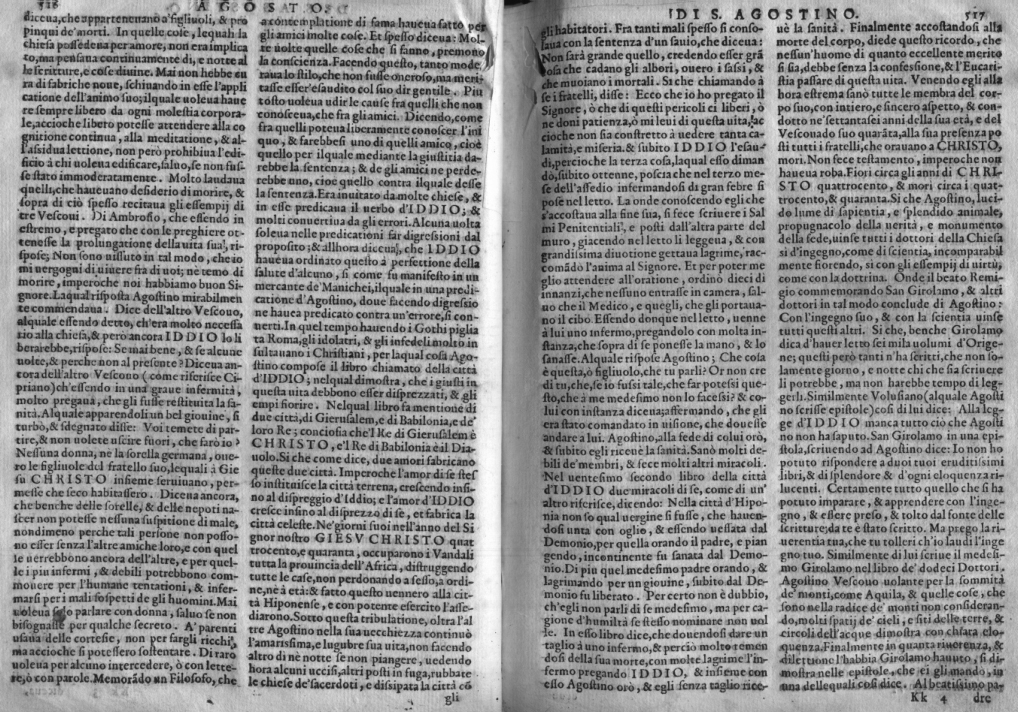 AGOSTO.
dicua, che appartenevano a figliuoli, & pro
pinqui de'morti. In quelle cose, lequali la
chiesa possedeua per amore, non era implica
to, ma pensaua continuamente di, e notte al
le scritture, e cose diuine. Mai non hebbe cu
ra di fabriche noue, schiuando in esse l'appli
catione dell'animo suo; ilquale uoleua haue
re sempre libero da ogni molestia corpora-
le, accioche libero potesse attendere alla co
gnitione continua, alla meditatione, & al-
l'assidua lettione, non però prohibiua l'edi-
ficio à chi uoleua edificare, saluo, se non fus-
se stato immoderatamente. Molto laudaua
quelli, che haueuano desiderio di morire, &
sopra di ciò spesso recitaua gli essempij di
tre Vescoui. Di Ambrosio, che essendo in
estremo, e pregato che con le preghiere ot-
tenesse la prolungatione della uita sua, ri-
spose; Non sono uissuto in tal modo, che io
mi uergogni di uiuere fra di uoi; nè temo di
morire, imperoche noi habbiamo buon Si-
gnore. Laqual risposta Agostino mirabilmen
te commendaua. Dice dell'altro Vescouo,
alquale essendo detto, ch'era molto necessa
tio alla chiesa, & però ancora IDDIO lo li
berarebbe, rispose: Se mai bene, & se alcune
uolte, & perche non al presente? Diceua an-
cora dell'altro Vescouo (come riferisce Ci-
priano) ch'essendo in una graue infermità,
molto pregaua, che gli fusse restituita la sa-
nità. Alquale apparendoli un bel giouine, si
turbò, & sdegnato disse: Voi temete di par-
tire, & non uolete uscire fuori, che farò io?
Nessuna donna, nè la sorella germana, oue-
ro le figliuole del fratello suo, lequali à Gie
su CHRISTO insieme seruiuano, per-
messe che seco habitassero. Diceua ancora,
che benche delle sorelle, & delle nepoti na-
scer non potesse nessuna suspitione di male,
nondimeno perche tali persone non posso-
no esser senza l'altre amiche loro, e con quel
le uerrebbono ancora dell'altre, e per quel-
le i piu infermi, & debili potrebbono com-
mouere per l'humane tentationi, & infer-
marsi per i mali sospetti de gli huomini. Mai
uoleua solo parlare con donna, saluo se non
bisognasse per qualche secreto. A' parenti
usaua delle cortesie, non per fargli ricchi,
ma accioche si potessero sostentare. Di raro
uoleua per alcuno intercedere, ò con lette-
re, ò con parole. Memorādo un Filosofo, che
a contemplatione di fama haueua fatto per
gli amici molte cose. Et spesso diceua: Mol-
te uolte quelle cose che si fanno, premono
la conscienza. Facendo questo, tanto mode
raua lo stilo, che non fusse oneroso, ma meri
tasse esser essaudito col suo dir gentile. Piu
tosto uoleua udir le cause fra quelli che non
conosceua, che fra gli amici. Dicendo, come
fra quelli poteua liberamente conoscer l'ini
quo, & farebbesi uno di quelli amico, cioè
quello per ilquale mediante la giustitia da-
rebbe la sentenza; & de gli amici ne perde-
rebbe uno, cioe quello contro ilquale desse
la sentenza. Era inuitato da molte chiese, &
in esse predicaua il uerbo d'IDDIO; &
molti conuertiua da gli errori. Alcuna uolta
soleua nelle predicationi far digressioni dal
proposito; & allhora diceua, che IDDIO
haueua ordinato questo à perfettione della
salute d'alcuno, si come fu manifesto in un
mercante de'Manichei, ilquale in una predi-
catione d'Agostino, doue facendo digressio
ne hauea predicato contra un'errore, si con-
uerti. In quel tempo hauendo i Gothi piglia
ta Roma, gli idolatri, & gli infedeli molto in
sultauano i Christiani, per laqual cosa Ago-
stino compose il libro chiamato della città
d'IDDIO; nelqual dimostra, che i giusti in
questa uita debbono esser disprezzati, & gli
empi fiorire. Nelqual libro fa mentione di
due città, di Gierusalem, e di Babilonia, e de'
loro Re; conciosia che'l Re di Gierusalem è
CHRISTO, e'l Re di Babilonia è il Dia-
uolo. Si che come dice, due amori fabricano
queste due città. Imperoche l'amor di se stes
so instituisce la città terrena, crescendo infi-
no al dispreggio d'Iddio; e l'amor d'IDDIO
cresce infino al disprezzo di se, et fabrica la
città celeste. Ne'giorni suoi nell'anno del Si
gnor nostro GIESV CHRISTO quat
trocento, e quaranta, occuparono i Vandali
tutta la prouincia dell'Africa, distruggendo
tutte le case, non perdonando a sesso, a ordi-
ne, nè à età: & fatto questo uennero alla cit-
tà Hiponense, e con potente esercito l'asse-
diarono. Sotto questa tribulatione, oltra l'al
tre Agostino nella sua uecchiezza continuò
l'amarissima, e lugubre sua uita, non facendo
altro di nè notte se non piangere, uedendo
hora alcuni uccisi, altri posti in fuga, rubbate
le chiese de'sacerdoti, e dissipata la città cō
gli
DI S. AGOSTINO.
517
gli habitatori. Fra tanti mali spesso si conso-
laua con la sentenza d'un sauio, che diceua:
Non sarà grande quello, credendo esser grā
cosa che cadano gli alberi, ouero i sassi, &
che muoiano i mortali. Si che chiamando à
se i fratelli, disse: Ecco che io ho pregato il
Signore, ò che di questi pericoli ci liberi, ò
ne doni patienza, ò mi leui di questa uita, ac
cioche non sia constretto à uedere tanta ca-
lamità, e miseria. & subito IDDIO l'esau-
dì, percioche la terza cosa, laqual esso diman
dò, subito ottenne, poscia che nel terzo me-
se dell'assedio infermandosi di gran febre si
pose nel letto. La onde conoscendo egli che
s'accostaua alla fine sua, si fece scriuere i Sal
mi Penitentiali, e posti dall'altra parte del
muro, giacendo nel letto li leggeua, & con
grandissima diuotione gettaua lagrime, rac-
comādò l'anima al Signore. Et per poter me
glio attendere all'oratione, ordinò dieci dì
innanzi, che nessuno entrasse in camera, sal-
uo che il Medico, e quegli, che gli portaua-
no il cibo. Essendo donque nel letto, uenne
à lui uno infermo, pregandolo con molta in-
stanza, che sopra di se ponesse la mano, & lo
sanasse. Alquale rispose Agostino; Che cosa
è questa, ò figliuolo, che tu parli? Or non cre
di tu, che, se io fussi tale, che far potessi que-
sto, che à me medesimo non lo facessi? & co-
lui con instanza diceua; affermando, che gli
era stato comandato in uisione, che douesse
andare a lui. Agostino, alla fede di colui orò,
& subito egli riceuè la sanità. Sanò molti de-
bili de'membri, & fece molti altri miracoli.
Nel uentesimo secondo libro della città
d'IDDIO due miracoli di se, come di un'
altro riferisce, dicendo: Nella città d'Hipo-
nia non so qual uergine si fusse, che hauen-
dosi unta con oglio, & essendo uessata dal
Demonio, per quella orando il padre, e pian
gendo, incontinente fu sanata dal Demo-
nio. Di piu quel medesimo padre orando, &
lagrimando per un giouine, subito dal De-
monio fu liberato. Per certo non è dubbio,
ch'egli non parli di se medesimo, ma per ca-
gione d'humiltà se stesso nominare non uol
se. In esso libro dice, che douendosi dare un
taglio à uno infermo, & perciò molto temen
dosi della sua morte, con molte lagrime l'in-
fermo pregando IDDIO, & insieme con
esso Agostino orò, & egli senza taglio rice-
uè la sanità. Finalmente accostandosi alla
morte del corpo, diede questo ricordo, che
nessun'huomo di quanto eccellente merito
si sia, debbe senza la confessione, & l'Eucari-
stia passare di questa uita. Venendo egli alla
hora estrema sanò tutte le membra del cor-
po suo, con intiero, e sincero aspetto, & con-
dotto ne'settantasei anni della sua età, e del
Vescouado suo quarāta, alla sua presenza po
sti tutti i fratelli, che orauano a CHRISTO,
morì. Non fece testamento, imperoche non
haueua roba. Fiorì circa gli anni di CHRI-
STO quattrocento, & morì circa i quat-
trocento, & quaranta. Si che Agostino, luci-
do lume di sapientia, e splendido animale,
propugnacolo della uerità, e monumento
della fede, uinse tutti i dottori della Chiesa
si d'ingegno, come di scientia, incomparabil
mente fiorendo, si con gli essempij di uirtù,
come con la dottrina. Onde il beato Remi-
gio commemorando San Girolamo, & altri
dottori in tal modo conclude di Agostino:
Con l'ingegno suo, & con la scientia uinse
tutti questi altri. Si che, benche Girolamo
dica d'hauer letto sei mila uolumi d'Orige-
ne; questi però tanti n'ha scritti, che non so-
lamente giorno, e notte chi che sia scriuere
li potrebbe, ma non harebbe tempo di leg-
gerli. Similmente Volusiano (alquale Agosti
no scrisse epistole) cosi di lui dice: Alla leg-
ge d'IDDIO manca tutto ciò che Agosti
no non ha saputo. San Girolamo in una epi-
stola, scriuendo ad Agostino dice: Io non ho
potuto rispondere a duoi tuoi eruditissimi
libri, & di splendore & d'ogni eloquenza ri-
lucenti. Certamente tutto quello che si ha
potuto imparare, & apprendere con l'inge-
gno, & essere preso, & tolto dal fonte delle
scritture; da te è stato scritto. Ma prego la ri-
uerentia tua, che tu tolleri ch'io laudi l'inge
gno tuo. Similmente di lui scriue il medesi-
mo Girolamo nel libro de' dodeci Dottori.
Agostino Vescouo uolante per la sommità
de'monti, come Aquila, & quelle cose, che
sono nella radice de' monti non consideran-
do, molti spatij de' cieli, e siti delle terre, &
circoli dell'acque dimostra con chiara elo-
quenza. Finalmente in quanta riuerenza, &
dilettione l'habbia Girolamo hauuto, si di-
mostra nelle epistole, che ei gli mandò, in
una delle quali cosi dice. Al beatissimo pa-
Kk 4 dre